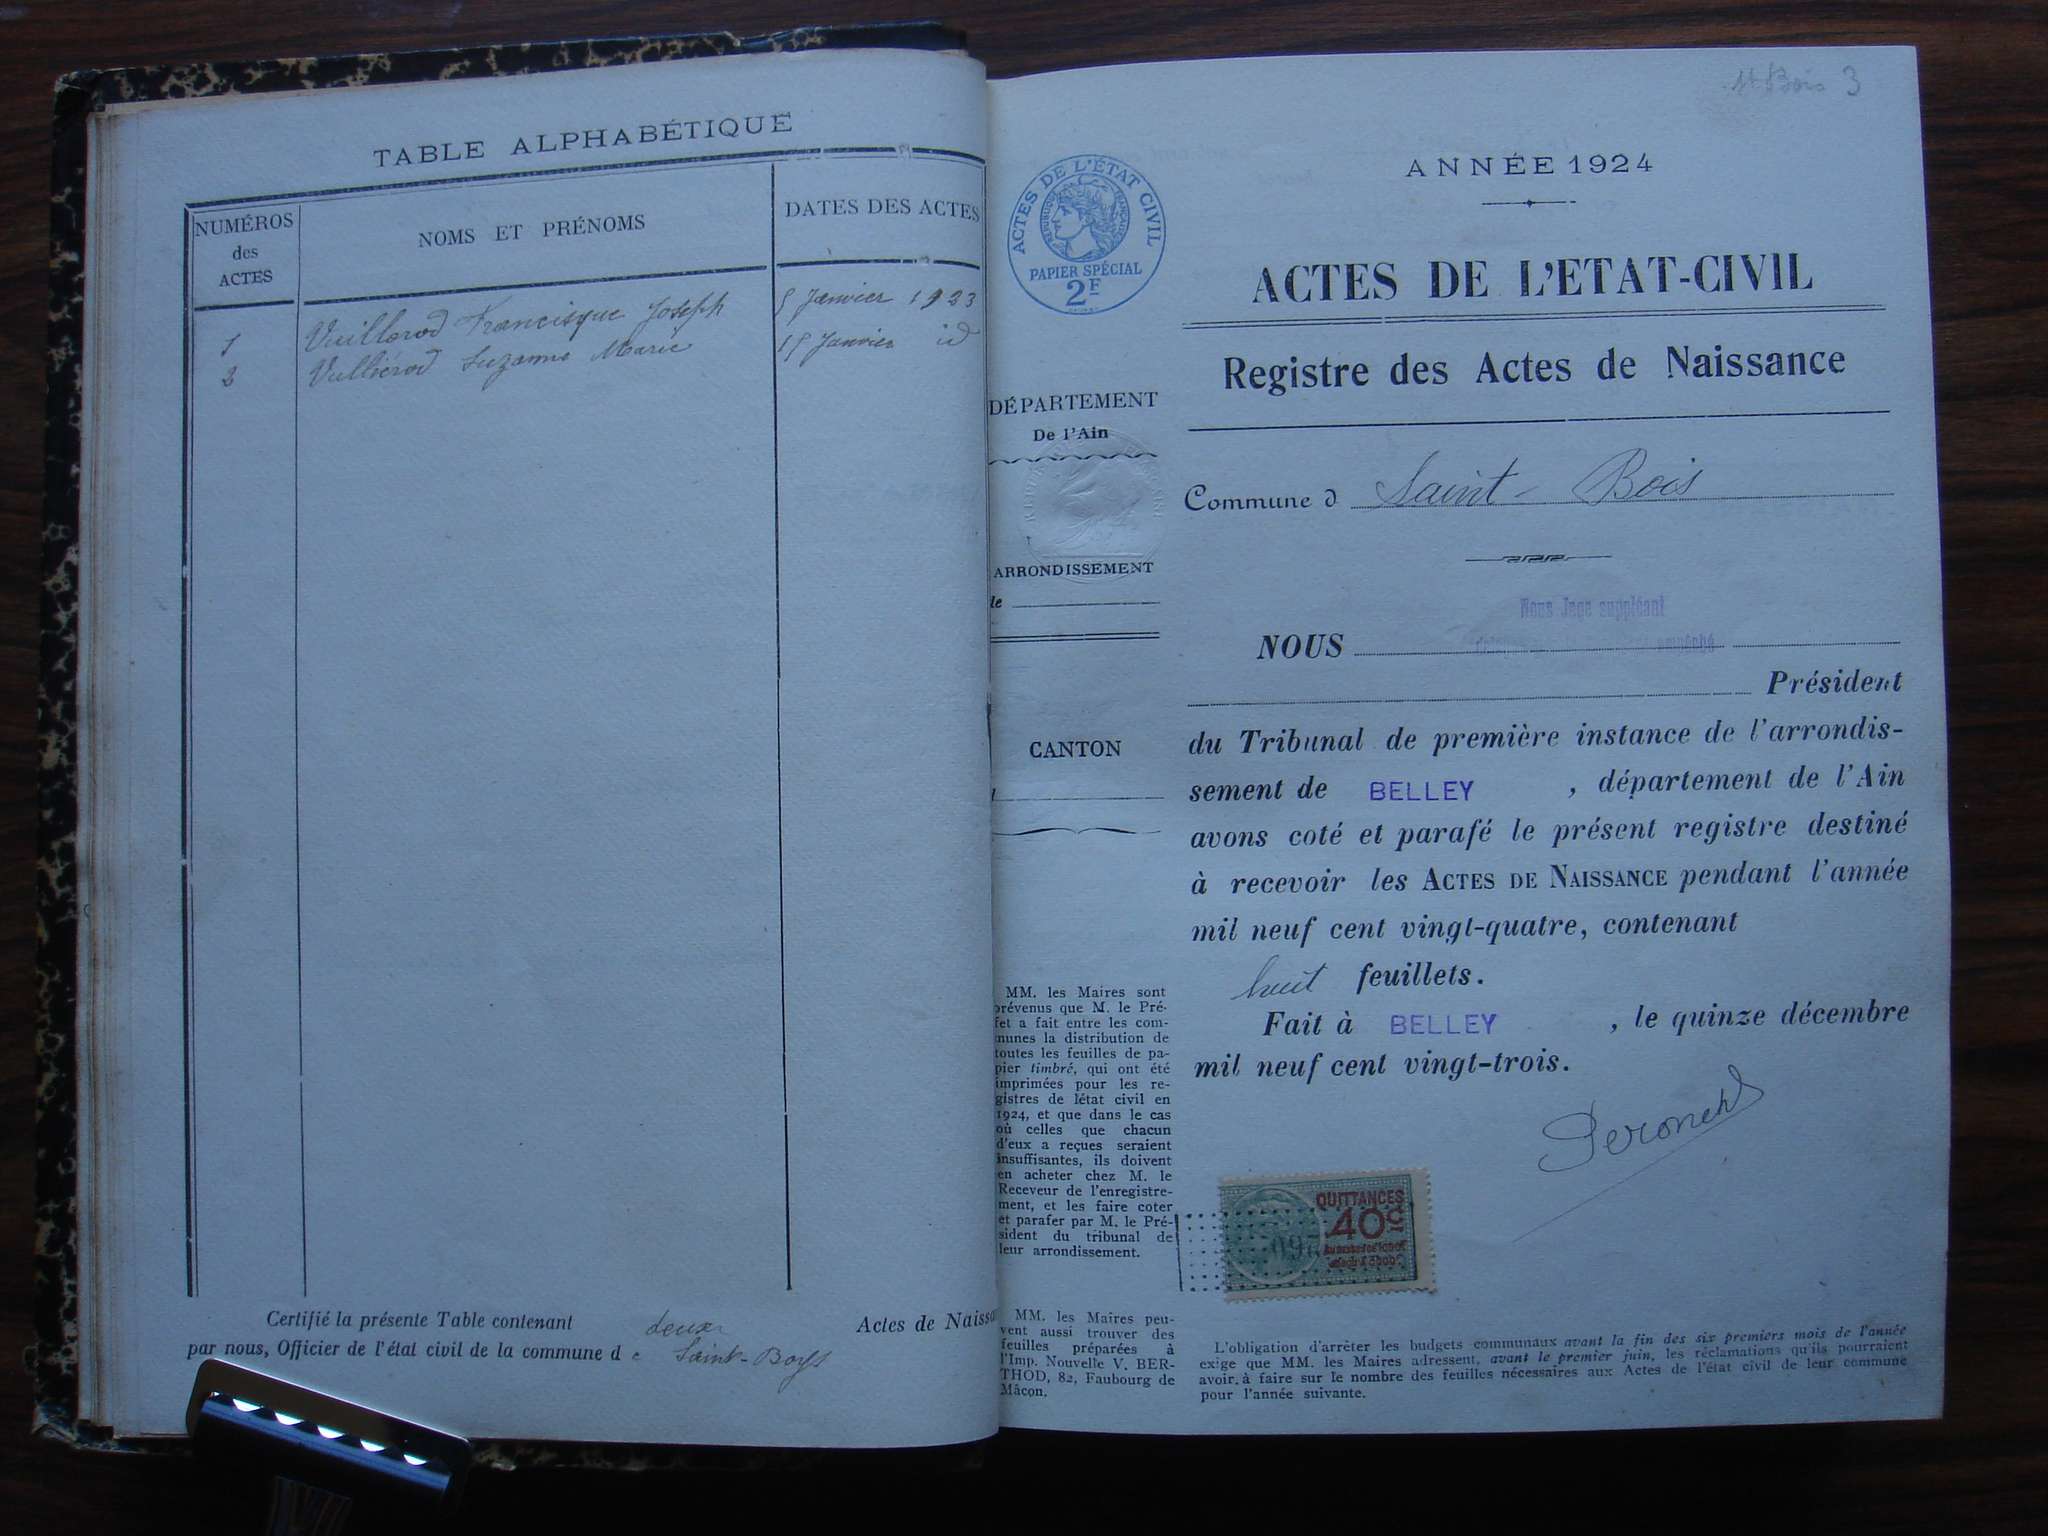 TABLE ALPHABÉTIQUE
NUMÉROS
des
ACTES
NOMS ET PRÉNOMS
DATES DES ACTES
1 Vuillerod Francisque Joseph 5 Janvier 1923
2 Vulliérod Suzanne Marie 15 Janvier id
Certifié la présente Table contenant deux Actes de Naissa
par nous, Officier de l'état civil de la commune de Saint-Boys
St Bois 3
ACTES DE L'ÉTAT CIVIL
RÉPUBLIQUE FRANÇAISE
PAPIER SPÉCIAL
2F
DÉPARTEMENT
De l'Ain
ARRONDISSEMENT
de
CANTON
MM. les Maires sont
prévenus que M. le Pré-
fet a fait entre les com-
munes la distribution de
toutes les feuilles de pa-
pier timbré, qui ont été
imprimées pour les re-
gistres de l'état civil en
1924, et que dans le cas
où celles que chacun
d'eux a reçues seraient
insuffisantes, ils doivent
en acheter chez M. le
Receveur de l'enregistre-
ment, et les faire coter
et parafer par M. le Pré-
sident du tribunal de
leur arrondissement.
MM. les Maires peu-
vent aussi trouver des
feuilles préparées à
l'Imp. Nouvelle V. BER-
THOD, 82, Faubourg de
Mâcon.
ANNÉE 1924
ACTES DE L'ETAT-CIVIL
Registre des Actes de Naissance
Commune d Saint-Bois
Nous Juge suppléant
empêché
NOUS
Président
du Tribunal de première instance de l'arrondis-
sement de BELLEY , département de l'Ain
avons coté et parafé le présent registre destiné
à recevoir les ACTES DE NAISSANCE pendant l'année
mil neuf cent vingt-quatre, contenant
huit feuillets.
Fait à BELLEY , le quinze décembre
mil neuf cent vingt-trois.
QUITTANCES
40c
L'obligation d'arrêter les budgets communaux avant la fin des six premiers mois de l'année
exige que MM. les Maires adressent, avant le premier juin, les réclamations qu'ils pourraient
avoir à faire sur le nombre des feuilles nécessaires aux Actes de l'état civil de leur commune
pour l'année suivante.